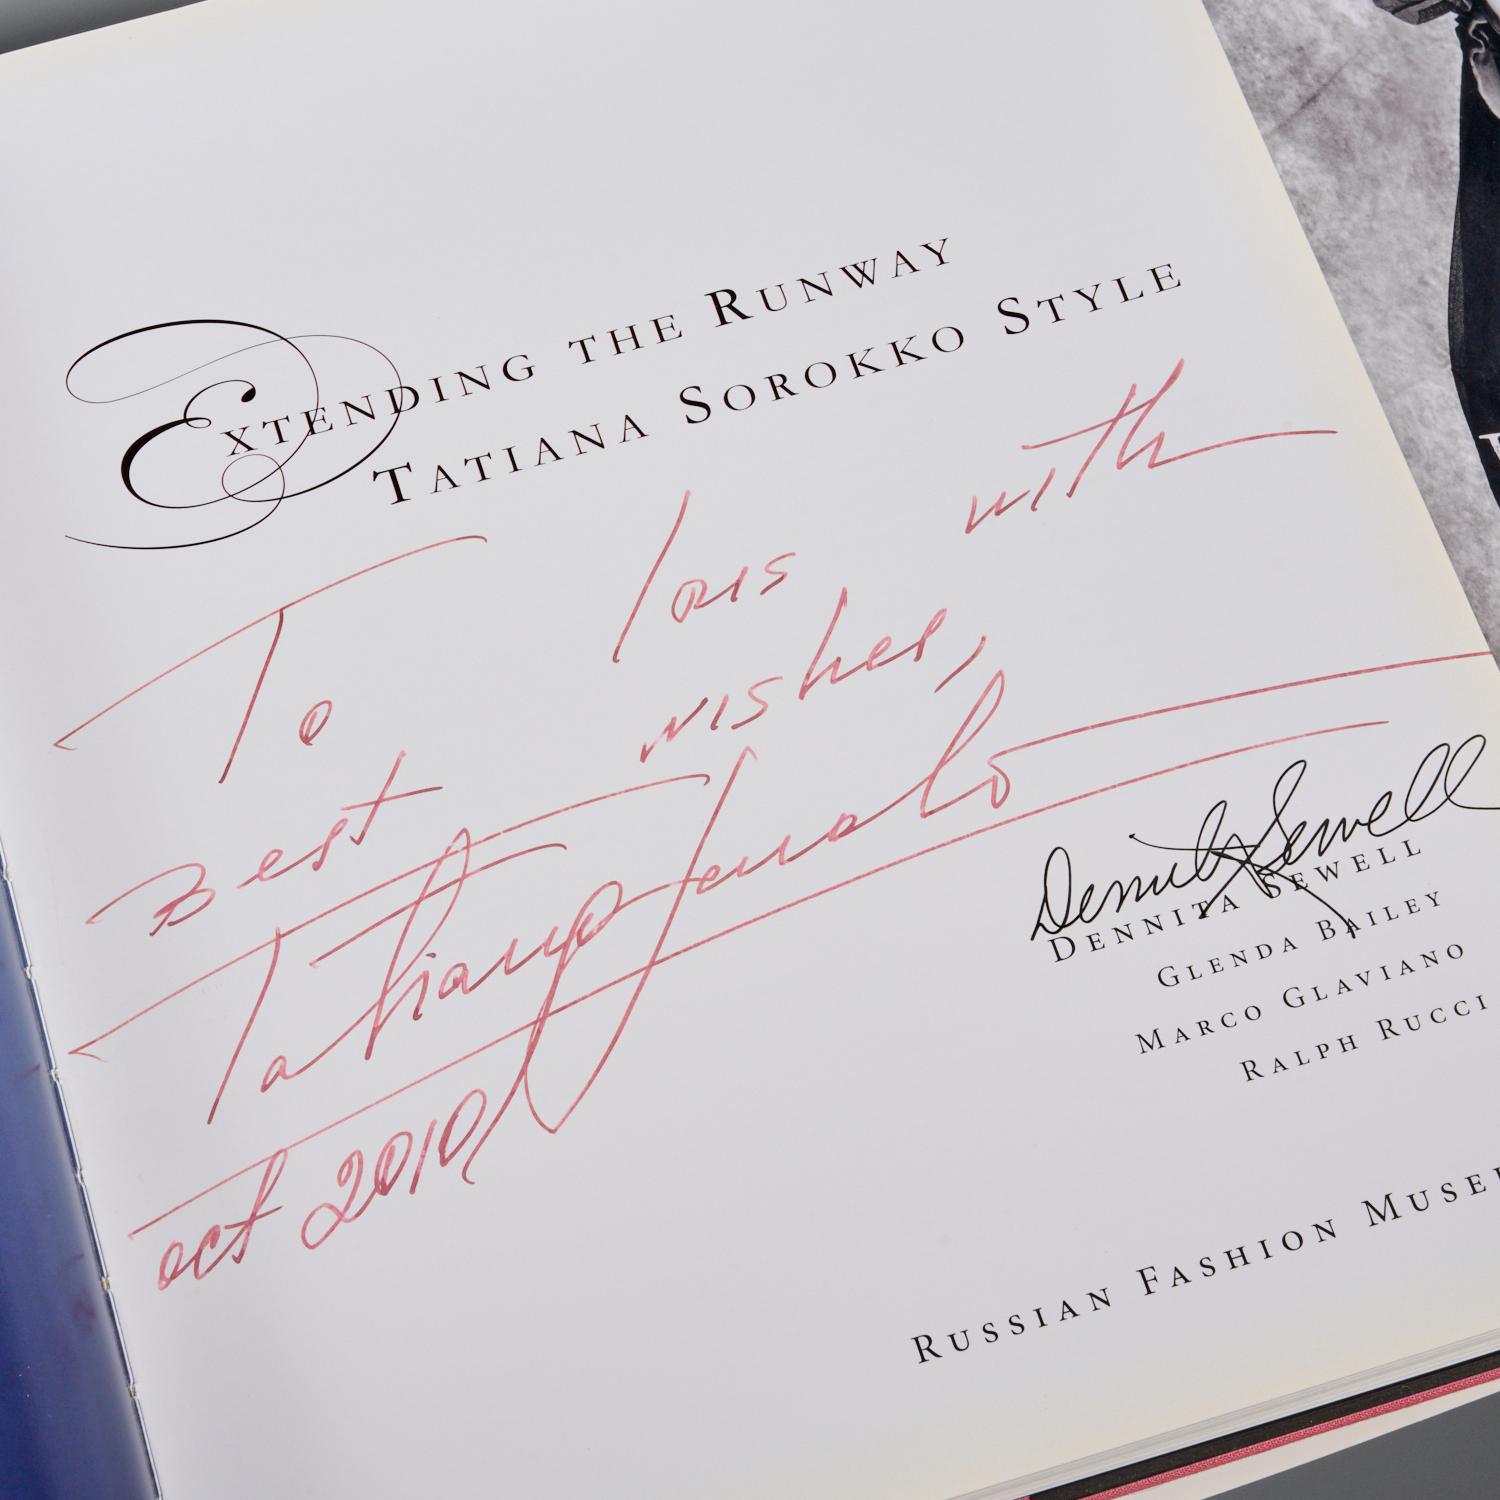 EXTENDING THE RUNWAY
TATIANA SOROKKO STYLE
To Lois with
Best wishes,
Tatiana Sorokko
oct 2010
Dennita Sewell
DENNITA SEWELL
GLENDA BAILEY
MARCO GLAVIANO
RALPH RUCCI
RUSSIAN FASHION